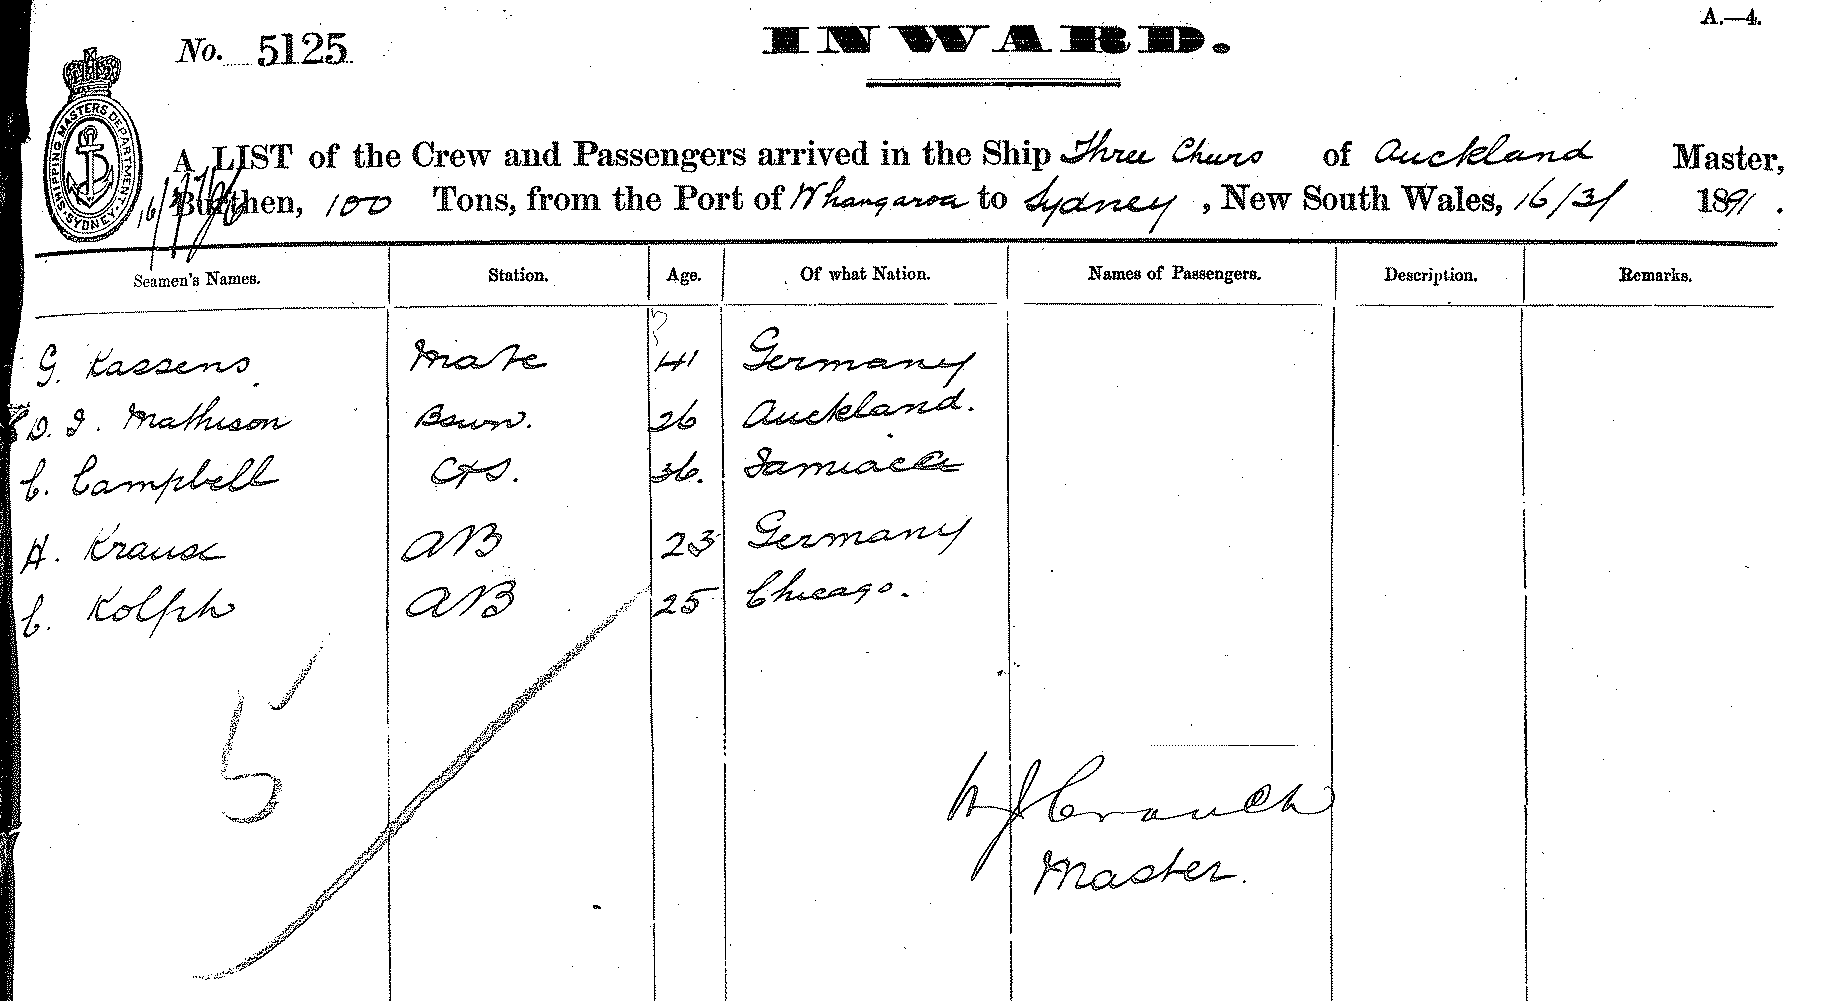 No. 5125
INWARD.
A.—4.
SHIPPING MASTERS DEPARTMENT SYDNEY
A LIST of the Crew and Passengers arrived in the Ship Three Cheers of Auckland Master,
Burthen, 100 Tons, from the Port of Whangaroa to Sydney, New South Wales, 16/3/ 1891.
Seamen's Names. Station. Age. Of what Nation. Names of Passengers. Description. Remarks.
G. Kassens. Mate 41 Germany
D. I. Mathison Bswn. 26 Auckland.
C. Campbell C&S. 36. Jamiaca
H. Krause AB 23 Germany
C. Kolph AB 25 Chicago.
5
J Crouch
Master.